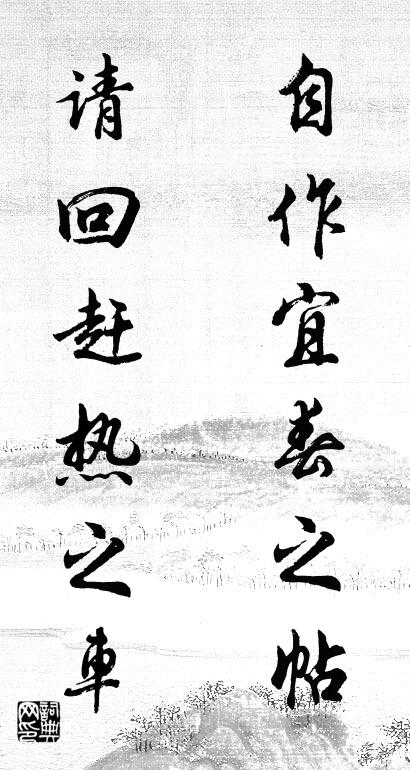 自作宜春之帖
请回赶热之車
詞典网印